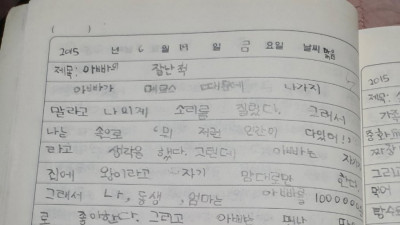 ( )
2015 년 6 월 19 일 금 요일 날씨 맑음
제목: 아빠의 잘난척
아빠가 메르스 때문에 나가지
말라고 나에게 소리를 질렀다. 그래서
나는 속으로 '뭐 저런 인간이 다있어!'
라고 생각을 했다. 그런데 아빠는 자기
집에 왕이라고 자기 맘대로만 한다
그래서 나, 동생, 엄마는 아빠를
로 좋아한다. 그리고
2015
제목: